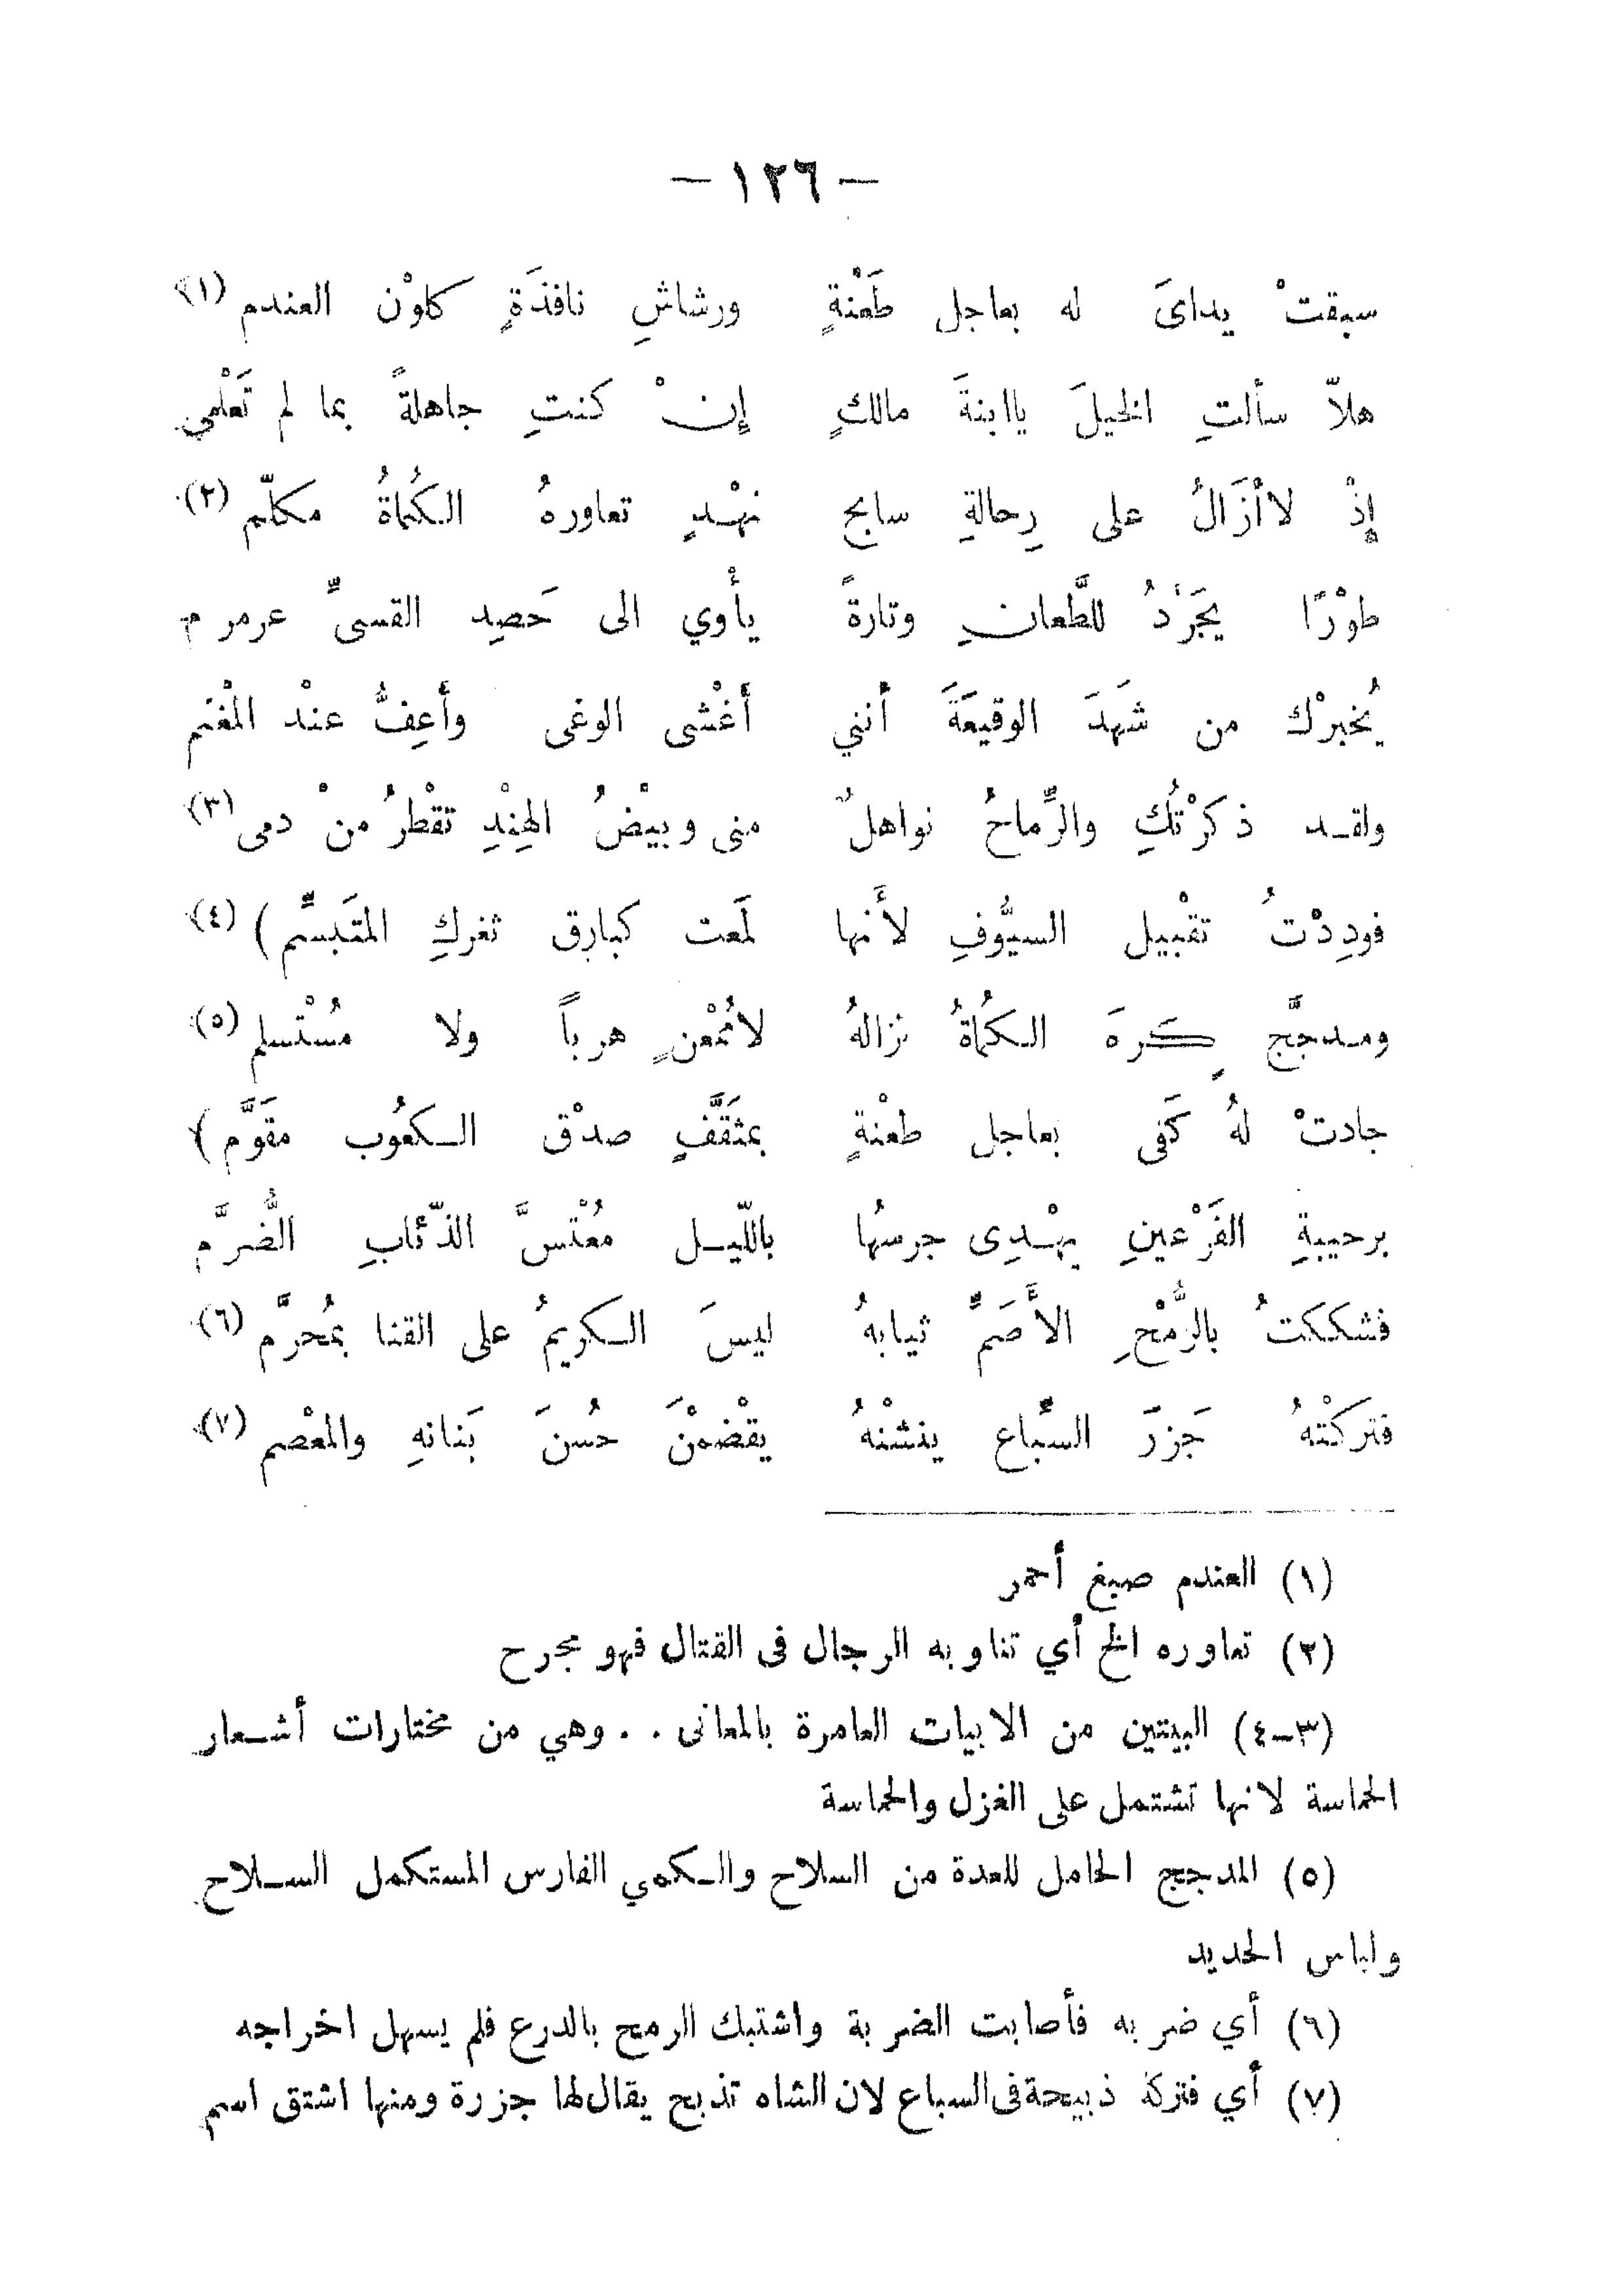 — ١٢٦ —
سبقتْ يدايَ له بعاجل طَعْنةٍ ورشاشِ نافذَةٍ كلوْن العندم (١)
هلاّ سألتِ الخيلَ ياابنةَ مالكٍ إنْ كنتِ جاهلةً بما لم تَعْلمي
إذْ لاأزَالُ على رِحالةِ سابح نهْدٍ تعاورهُ الكُماةُ مكلّم (٢)
طوْرًا يجَرَّدُ للطَّعانِ وتارةً يأْوي الى حَصِد القسىِّ عرمرم
يُخبرْك من شَهِدَ الوقيعَةَ أنني أغْشى الوغى وأعِفُّ عنْد المْغنم
ولقد ذكرْتُكِ والرِّماحُ نواهلٌ منى وبيْضُ الهِنْدِ تقْطرُ منْ دمى (٣)
فودِدْتُ تقْبيل السيُّوفِ لأَنها لمَعت كبارِق ثغركِ المتَبسِّم) (٤)
ومدجَّج كَرِهَ الكُماةُ نزالهُ لامُمْعنٍ هرباً ولا مُسْتسلم (٥)
جادتْ لهُ كَفى بعاجل طعْنةٍ بمثَقَّفٍ صدْق الكعُوب مقَوَّم)
برحيبةِ الفَرْعينِ يهْدِى جرسُها بالليّل مُعْتسَّ الذّئابِ الضُّرَّم
فشككتُ بالرُّمْحِ الأَصَمِّ ثيابهُ ليسَ الكريمُ على القنا بمُحرَّم (٦)
فتركتْهُ جَزرَ السِّباع ينشْنهُ يقْضمْنَ حُسنَ بَنانهِ والمعْصم (٧)
(١) العندم صبغ أحمر
(٢) تعاوره الخ أي تناوبه الرجال فى القتال فهو مجرح
(٣–٤) البيتين من الابيات العامرة بالمعانى . . وهي من مختارات أشعار
الحماسة لانها تشتمل على الغزل والحماسة
(٥) المدجج الحامل للعدة من السلاح والكمي الفارس المستكمل السلاح
ولباس الحديد
(٦) أي ضربه فأصابت الضربة واشتبك الرمح بالدرع فلم يسهل اخراجه
(٧) أي فتركة ذبيحة فى السباع لان الشاه تذبح يقال لها جزرة ومنها اشتق اسم